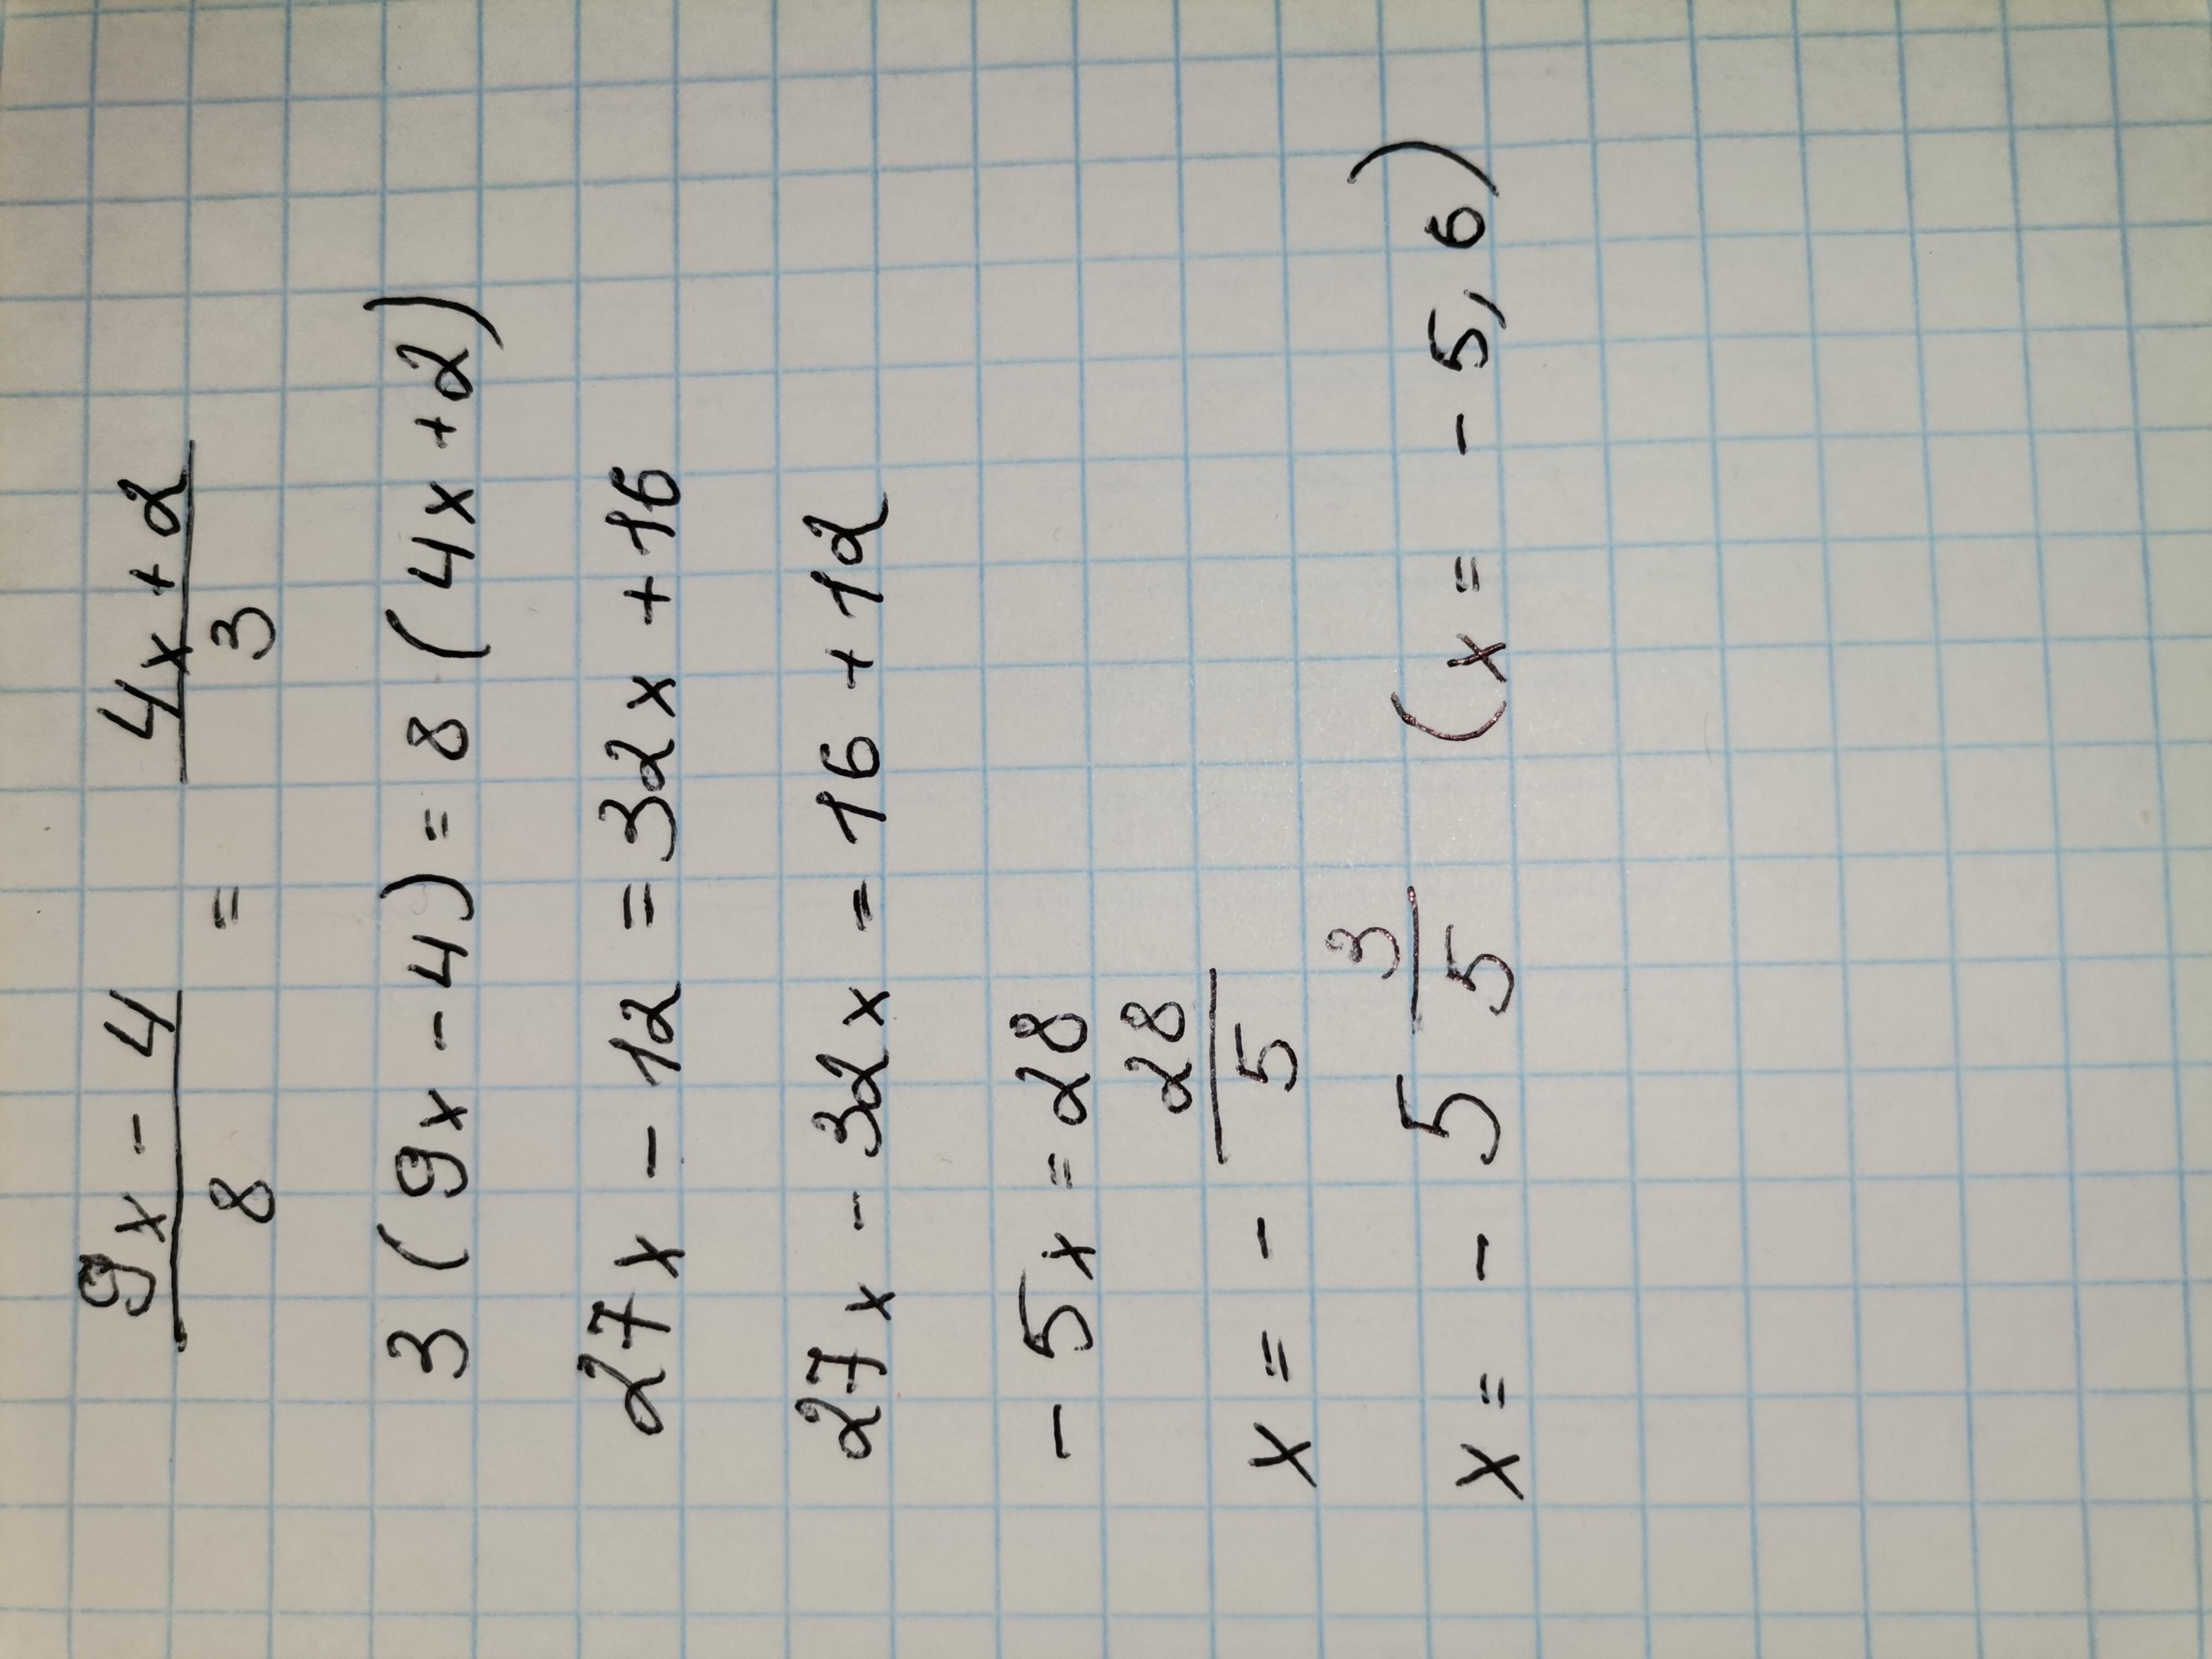 9x - 4 / 8 = 4x + 2 / 3
3 (9x - 4) = 8 (4x + 2)
27x - 12 = 32x + 16
27x - 32x = 16 + 12
- 5x = 28
x = - 28/5
x = - 5 3/5 (x = - 5,6)